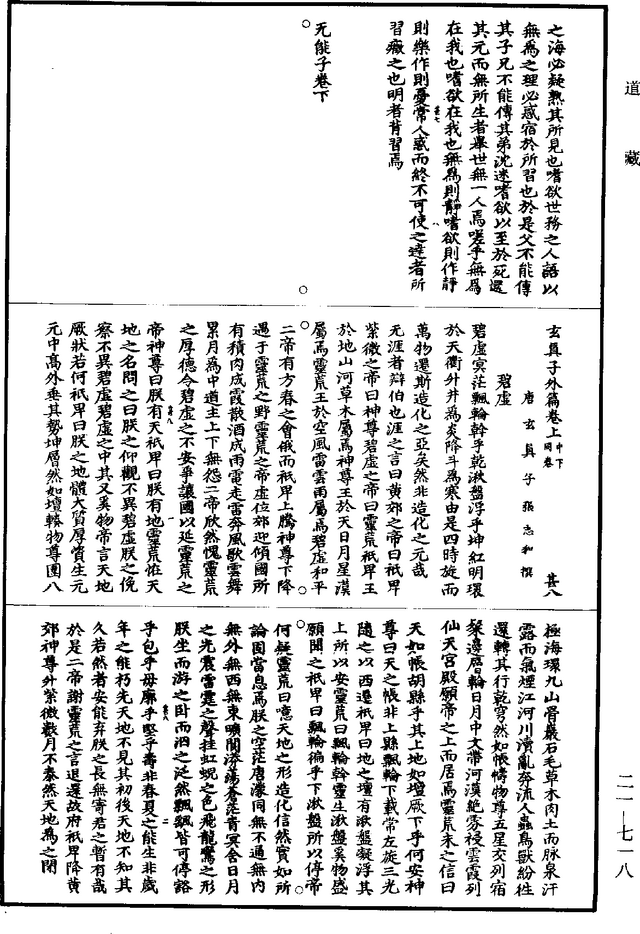 道藏
之海必凝熱其所見也嗜欲世務之人語以
無為之理必惑宿於所習也於是父不能傳
其子兄不能傳其弟沈迷嗜欲以至於死還
其元而無所生者舉世無一人焉嗟乎無為
在我也嗜欲在我也無為則靜嗜欲則作靜
則樂作則憂常人惑而終不可使之達者所
習癥之也明者背習焉
无能子卷下
玄真子外篇卷上 中下同卷 甚八
唐玄真子張志和撰
碧虛
碧虛冥茫飄輪幹乎乾湫盤浮乎坤紅明環
於天衢外井為炎降斗為寒由是四時旋而
萬物遷斯造化之亞矣然非造化之元哉
无涯者辯伯也涯之言曰黃郊之帝曰祇卑
紫微之帝曰神尊碧虛之帝曰靈荒祇卑王
於地山河草木屬焉神尊王於天日月星漢
屬焉靈荒王於空風雷雲雨屬焉碧虛和平
二帝有方春之會俄而祇卑上騰神尊下降
遇于靈荒之野靈荒之帝虛位郊迎傾國所
有積肉成霞散酒成雨電走雷奔風歌雲舞
累月為中道主上下無怨二帝欣然愧靈荒
之厚德令碧虛之不安乎讓國以延靈荒之
帝神尊曰朕有天祇卑曰朕有地靈荒怪天
地之名問之曰朕之仰觀不異碧虛朕之俛
察不異碧虛碧虛之中其又奚物帝言天地
厥狀若何祇卑曰朕之地體大質厚資生元
元中高外垂其勢坤層然如壇轃物尊團八
極海環九山骨巖石毛草木肉土而脉泉汗
露而氣煙江河川瀆亂奔流人蟲鳥獸紛牲
還轉其行乾穹然如帳幬物尊五星交列宿
粲邊磨輪日月中文帶河漢絁雰祲雲霞列
仙天宮殿願帝之上而居焉靈荒未之信曰
天如帳胡縣乎其上地如壇厥下乎何安神
尊曰天之帳非上縣飄輪下載常左旋三光
隨之以西還祇卑曰地之壇有湫盤凝浮其
上所以安靈荒曰飄輪幹靈生湫盤奚物盛
願聞之祇卑曰飄輪徧乎下湫盤所以停帝
何疑靈荒曰噫天地之形造化信然實如所
論固當息焉朕之空茫唐濛同無不通無內
無外無西無東曠閬漭蕩蒼茫青冥含日月
之光震雷霆之聲挂虹蜺之色飛龍鸞之形
朕坐而游之卧而泗之泛然飄飄皆可停豁
乎包乎母廓乎堅乎壽非春夏之能生非歲
年之能朽先天地不見其初後天地不知其
久若然者安能弃朕之長無寄君之暫有哉
於是二帝謝靈荒之言退還故府祇卑降黃
郊神尊外紫微數月不泰然天地為之閉
二一—七一八